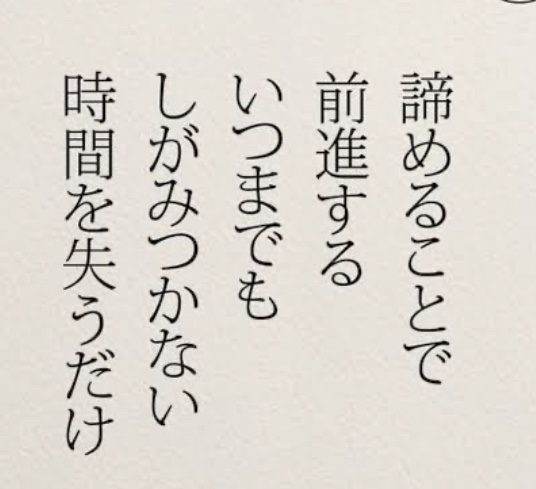 諦めることで
前進する
いつまでも
しがみつかない
時間を失うだけ